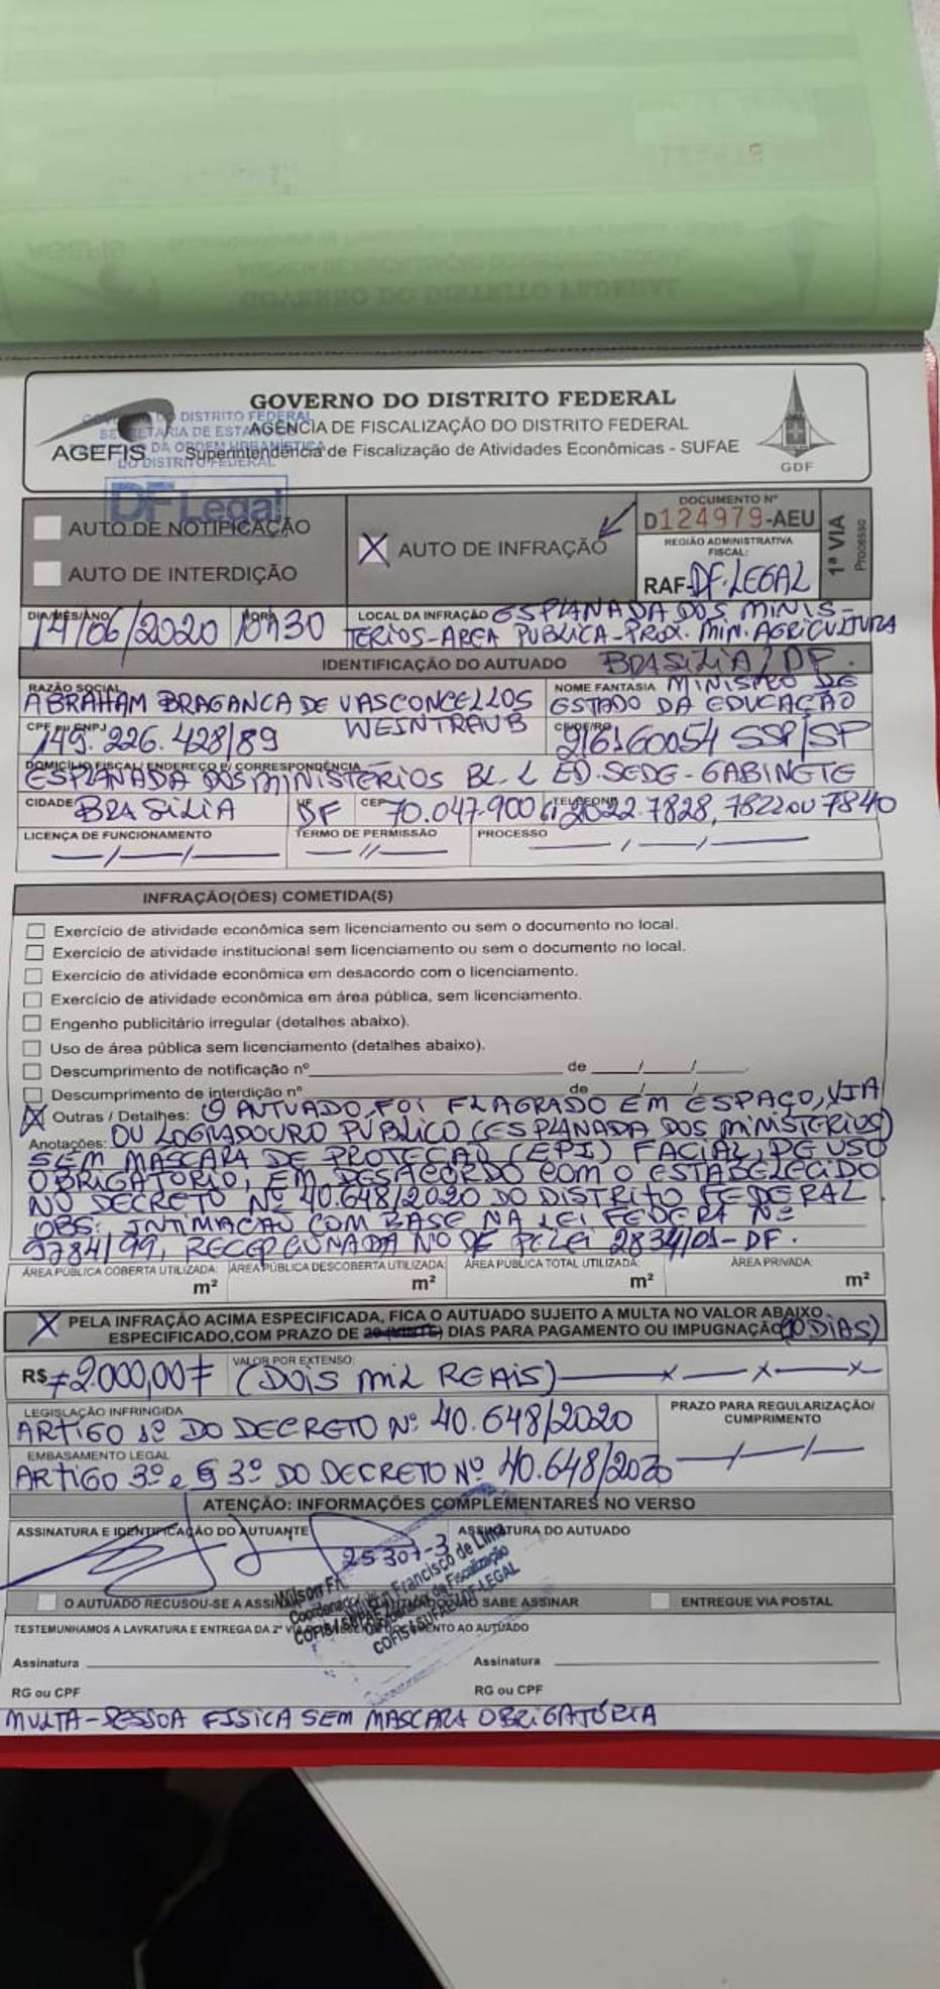 GOVERNO DO DISTRITO FEDERAL
AGÊNCIA DE FISCALIZAÇÃO DO DISTRITO FEDERAL
AGEFIS Superintendência de Fiscalização de Atividades Econômicas - SUFAE
GDF
DF Legal
AUTO DE NOTIFICAÇÃO
AUTO DE INTERDIÇÃO
X AUTO DE INFRAÇÃO
DOCUMENTO Nº
D124979-AEU
REGIÃO ADMINISTRATIVA
FISCAL:
RAF-DF-LEGAL
1ª VIA
Processo
DIA/MÊS/ANO 14/06/2020 HORA 10H30
LOCAL DA INFRAÇÃO ESPLANADA DOS MINIS-
TERIOS-AREA PUBLICA-PROX. MIN. AGRICULTURA
IDENTIFICAÇÃO DO AUTUADO BRASILIA/DF.
RAZÃO SOCIAL ABRAHAM BRAGANCA DE VASCONCELLOS WESNTRAUB
NOME FANTASIA MINISTRO DE ESTADO DA EDUCAÇÃO
CPF ou CNPJ 149.226.428/89
CF/DF/RG 216160054 SSP/SP
DOMICÍLIO FISCAL/ ENDEREÇO P/ CORRESPONDÊNCIA
ESPLANADA DOS MINISTÉRIOS BL-L ED. SEDE - GABINETE
CIDADE BRASILIA UF DF CEP 70.047-900 TELEFONE 61 2022.7828, 7822 OU 7840
LICENÇA DE FUNCIONAMENTO TERMO DE PERMISSÃO PROCESSO
INFRAÇÃO(ÕES) COMETIDA(S)
Exercício de atividade econômica sem licenciamento ou sem o documento no local.
Exercício de atividade institucional sem licenciamento ou sem o documento no local.
Exercício de atividade econômica em desacordo com o licenciamento.
Exercício de atividade econômica em área pública, sem licenciamento.
Engenho publicitário irregular (detalhes abaixo).
Uso de área pública sem licenciamento (detalhes abaixo).
Descumprimento de notificação nº de / /
Descumprimento de interdição nº de / /
X Outras / Detalhes: O AUTUADO FOI FLAGRADO EM ESPAÇO, VIA
Anotações: OU LOGRADOURO PUBLICO (ESPLANADA DOS MINISTERIOS)
SEM MASCARA DE PROTEÇÃO (EPI) FACIAL, DE USO
OBRIGATÓRIO, EM DESACORDO COM O ESTABELECIDO
NO DECRETO Nº 40.648/2020 DO DISTRITO FEDERAL
OBS: INTIMACAO COM BASE NA LEI FEDERA Nº
9784/99, RECEPCIONADA NO DF PELEI 2834/01-DF.
ÁREA PÚBLICA COBERTA UTILIZADA: m² ÁREA PÚBLICA DESCOBERTA UTILIZADA: m² ÁREA PÚBLICA TOTAL UTILIZADA: m² ÁREA PRIVADA: m²
X PELA INFRAÇÃO ACIMA ESPECIFICADA, FICA O AUTUADO SUJEITO A MULTA NO VALOR ABAIXO
ESPECIFICADO, COM PRAZO DE 20 (VINTE) DIAS PARA PAGAMENTO OU IMPUGNAÇÃO (10 DIAS)
R$ 2.000,00 VALOR POR EXTENSO: (DOIS MIL REAIS)
LEGISLAÇÃO INFRINGIDA
ARTIGO 1º DO DECRETO Nº 40.648/2020
PRAZO PARA REGULARIZAÇÃO/
CUMPRIMENTO
EMBASAMENTO LEGAL
ARTIGO 3º e § 3º DO DECRETO Nº 40.648/2020
ATENÇÃO: INFORMAÇÕES COMPLEMENTARES NO VERSO
ASSINATURA E IDENTIFICAÇÃO DO AUTUANTE ASSINATURA DO AUTUADO
25307-3
O AUTUADO RECUSOU-SE A ASSINAR SABE ASSINAR ENTREGUE VIA POSTAL
TESTEMUNHAMOS A LAVRATURA E ENTREGA DA 2ª VIA AO AUTUADO
Assinatura Assinatura
RG ou CPF RG ou CPF
MULTA-PESSOA FISICA SEM MASCARA OBRIGATÓRIA